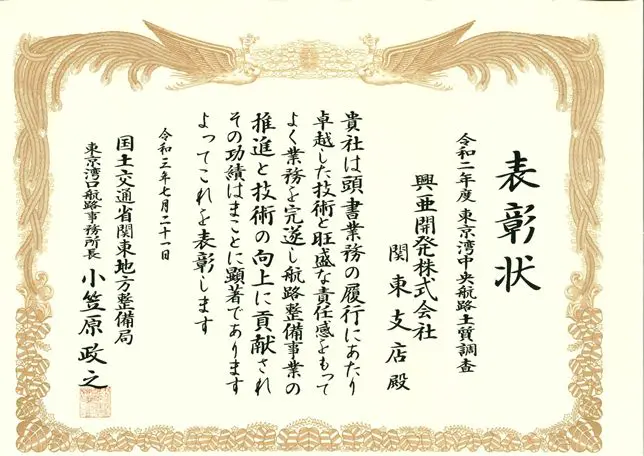 表彰状
令和二年度 東京湾中央航路土質調査
興亜開発株式会社
関東支店殿
貴社は頭書業務の履行にあたり
卓越した技術と旺盛な責任感をもって
よく業務を完遂し航路整備事業の
推進と技術の向上に貢献され
その功績はまことに顕著であります
よってこれを表彰します
令和三年七月二十一日
国土交通省関東地方整備局
東京湾口航路事務所長 小笠原政之